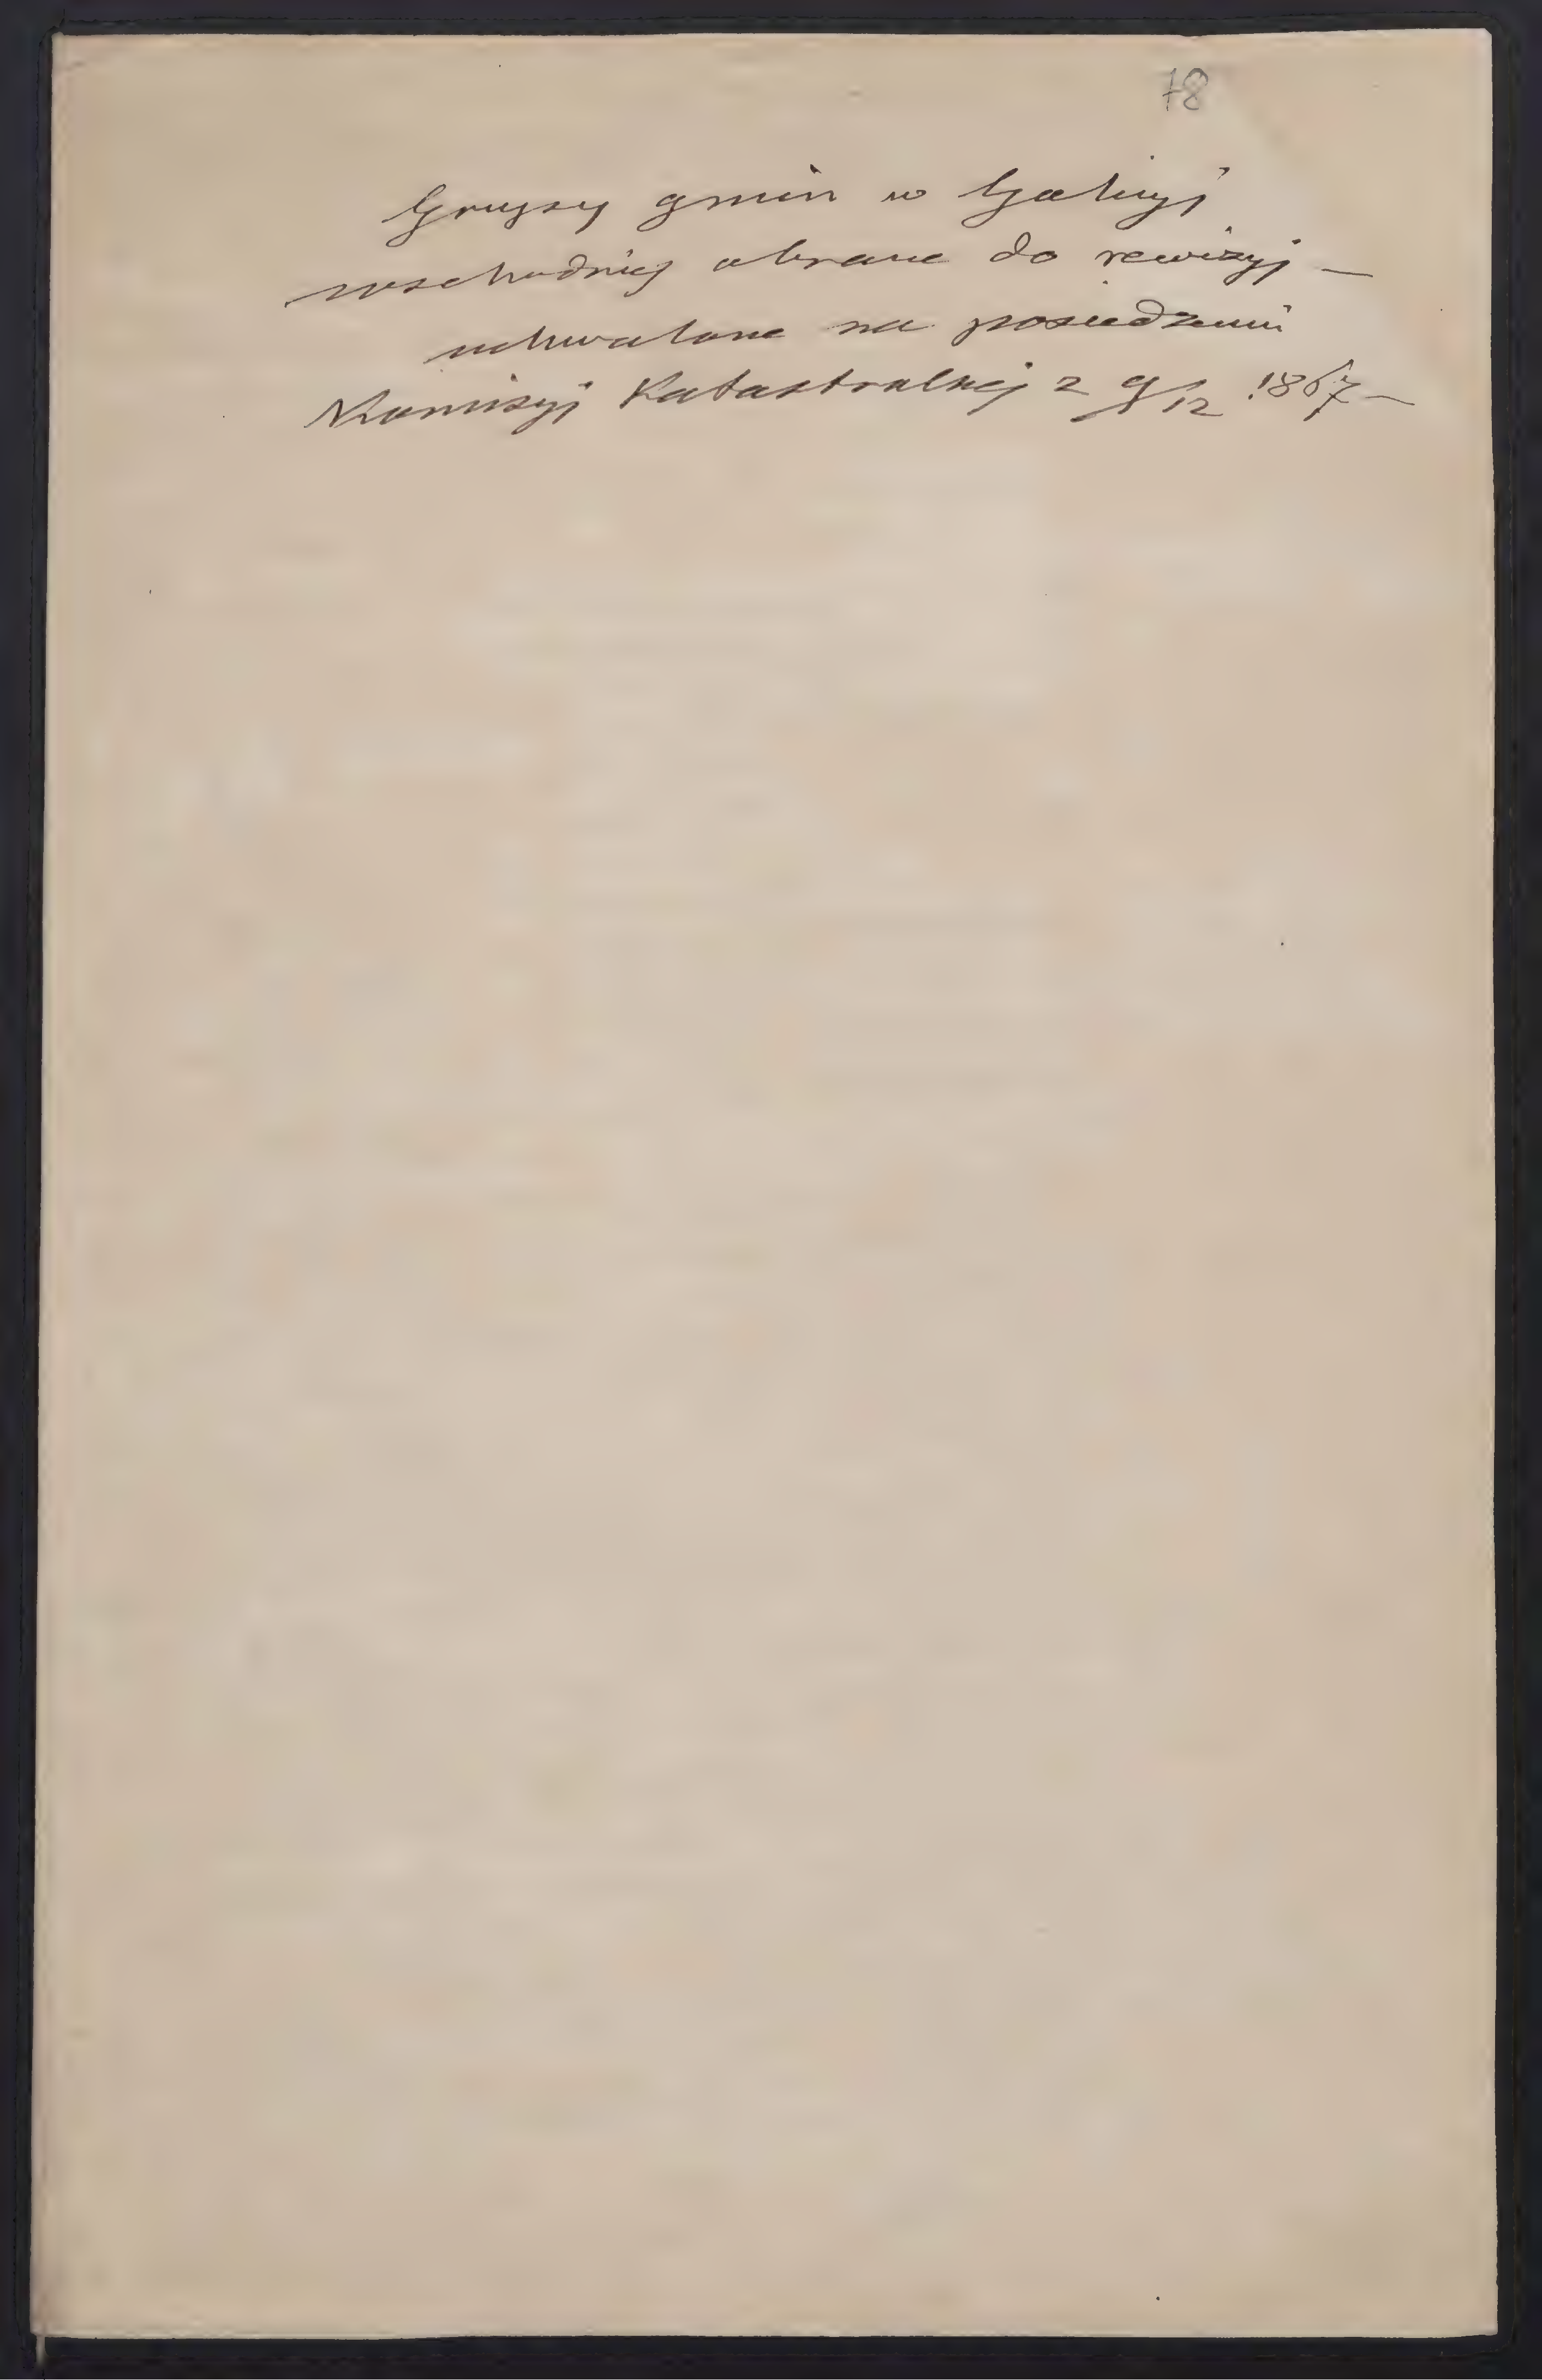 78
Grupy gmin w Galicyi
wschodniej obrane do rewizyi —
uchwalone na posiedzeniu
Komisyi Katastralnej z 9/12 1867 —